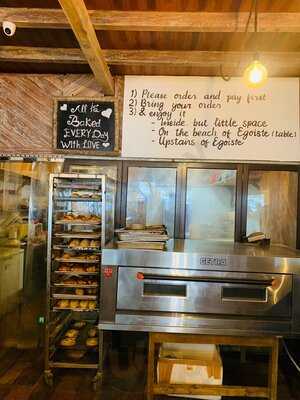 All is
Baked
EVERY Day
WITH LOVE
1) Please order and pay first
2) Bring your order
3) & enjoy it
- Inside but little space
- On the beach of Egoïste (table)
- Upstairs of Egoïste